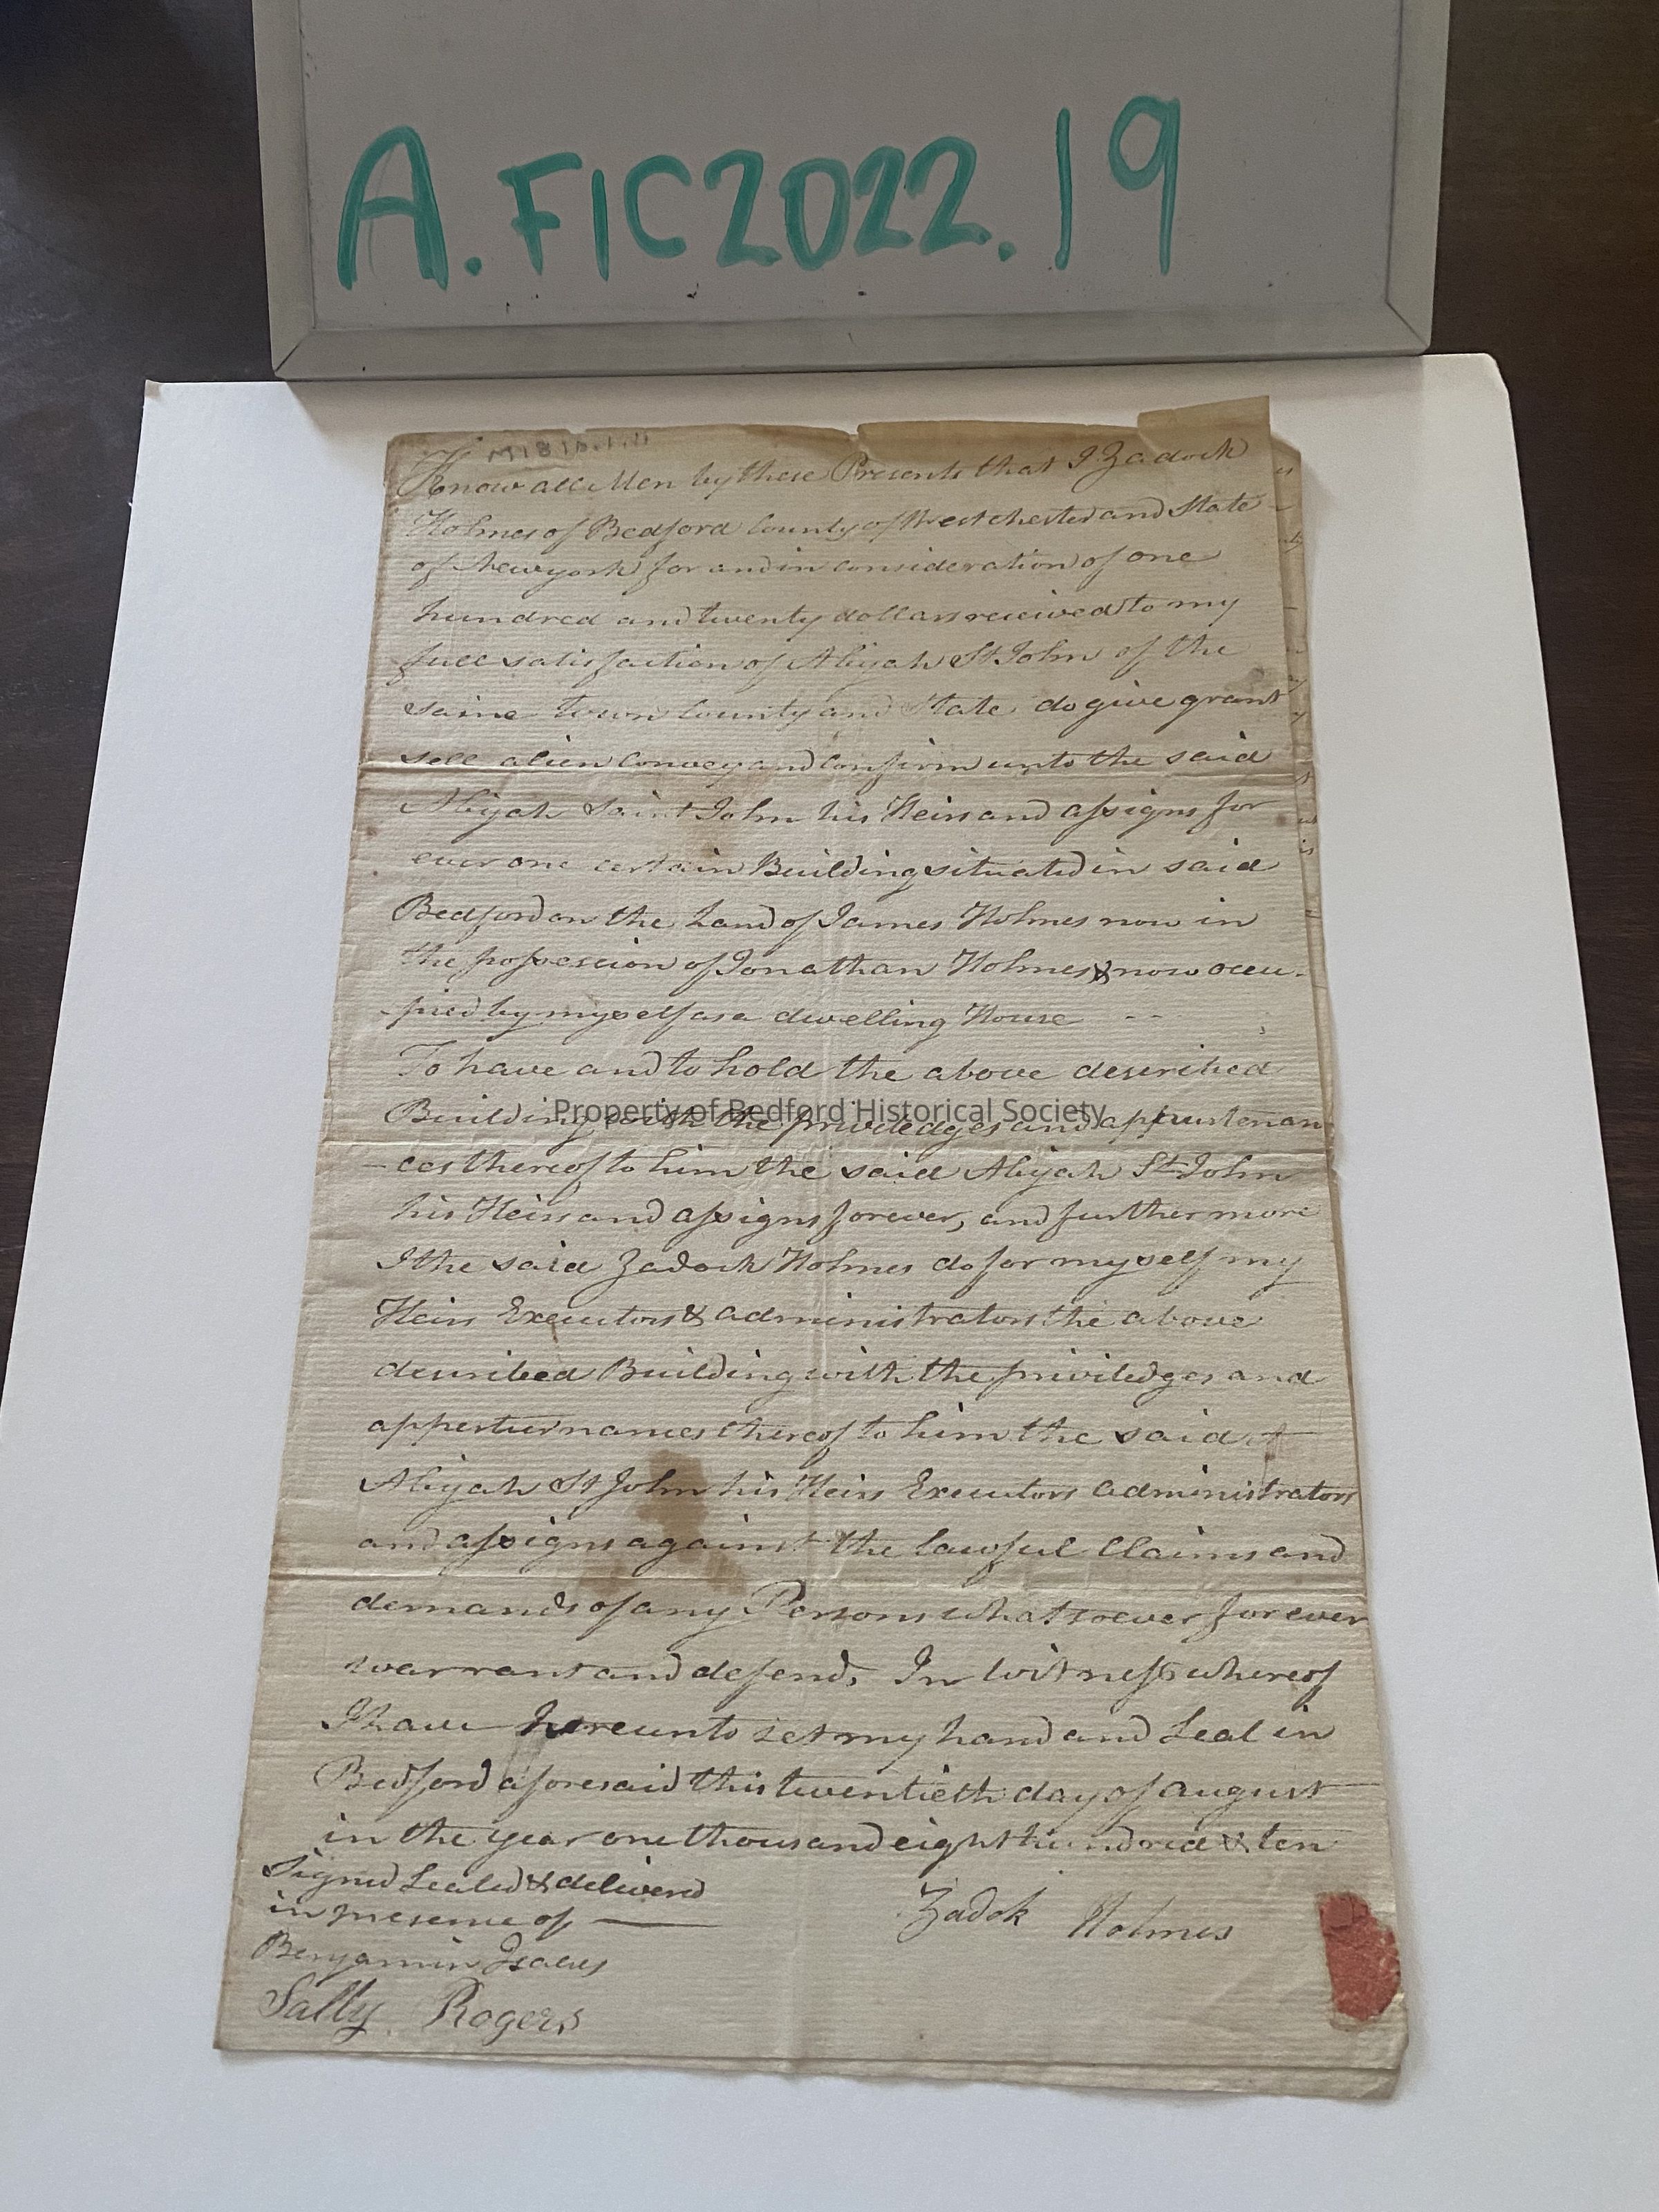 A.FIC2022.19
Know all Men by these Presents that I Zadock
Holmes of Bedford County of Westchester and State
of Newyork for and in consideration of one
hundred and twenty dollars received to my
full satisfaction of Abijah St John of the
same town County and State do give grant
sell alien Convey and Confirm unto the said
Abijah Saint John his Heirs and assigns for
ever one certain Building situated in said
Bedford on the Land of James Holmes now in
the possescion of Jonathan Holmes & now occu-
-pied by myself as a dwelling House --
To have and to hold the above described
Building with the priviledges and appurtenan
Property of Bedford Historical Society
-ces thereof to him the said Abijah St John
his Heirs and assigns forever, and furthermore
I the said Zadock Holmes do for myself my
Heirs Executors & administrators the above
described Building with the priviledges and
apperturnances thereof to him the said
Abijah St John his Heirs Executors administrators
and assigns against the lawful Claims and
demands of any Persons whatsoever for ever
warrant and defend, In Witness whereof
I have hereunto set my hand and Seal in
Bedford aforesaid this twentieth day of august
in the year one thousand eight hundred & ten
Signed Sealed & delivered
in presence of
Zadok Holmes
Benjamin Isaacs
Sally Rogers